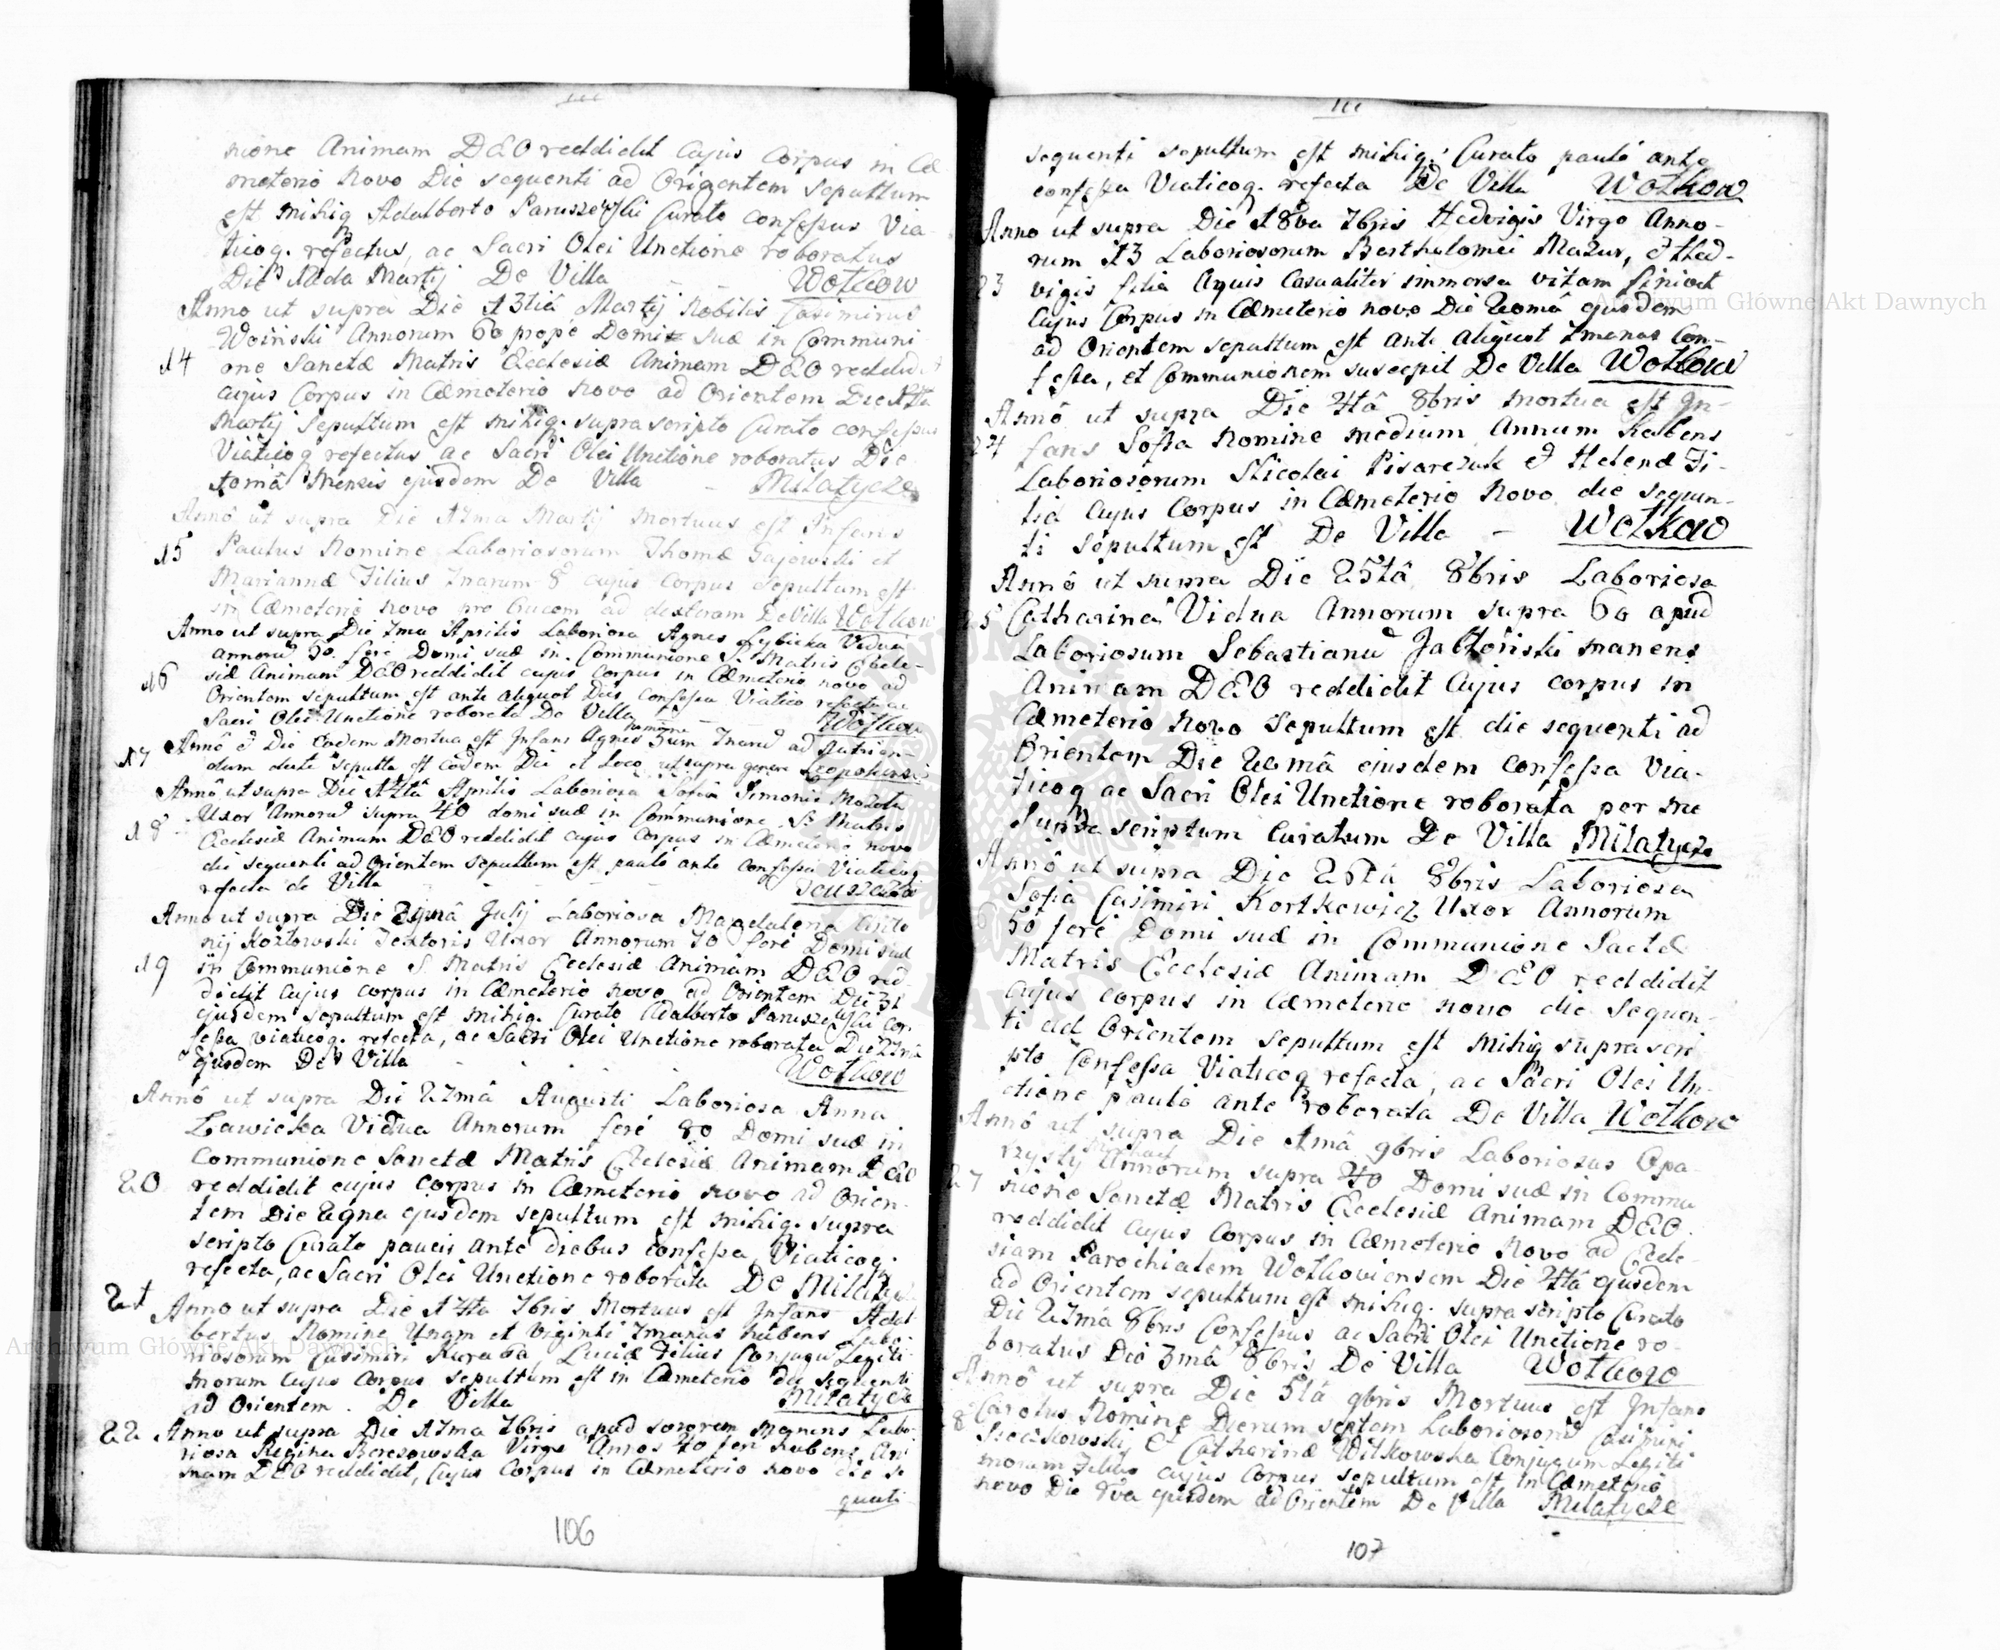 nione Animam DEO reddidit Cujus Corpus in Cæ
meterio Novo Die sequenti ad Orientem sepultum
est mihiq Adalberto Paruszewski Curato confessus Via-
ticoq. refectus, ac Sacri Olei Unctione roboratus
Die Martij De Villa Wołkow
Anno ut supra Die 13tiâ Martij Nobilis Casimirus
Woinski Annorum 60 prope Domi suæ in Communi
14 one Sanctæ Matris Ecclesiæ Animam DEO reddidit
cujus Corpus in Cæmeterio Novo ad Orientem Die
Martij sepultum est mihiq. supra scripto Curato confessus
Viaticoq refectus ac Sacri Olei Unctione roboratus Die
Mensis ejusdem De Villa – Milatycze
Annô ut supra Die 17ma Martij mortuus est Infans
15 Paulus Nomine Laboriosorum Thomæ Gajowski et
Mariannæ Filius 7manarum 8 cujus Corpus sepultum est
in Cæmeterio novo pro Crucem ad dexteram De Villa Wołkow
Anno ut supra Die 7ma Aprilis Laboriosa Agnes Vidua
annorũ 50. fere Domi suæ in Communione S. Matris Eccle-
16 siæ Animam DEO reddidit cujus Corpus in Cæmeterio novo ad
Orientem sepultum est ante aliquot Dies confessa Viatico refecta ac
Sacri Olei Unctione roborata De Villa Wołkow
17 Annô & Die eodem Mortua est Infans Agnes nomine ad
sepulta est eodem Die et Loco ut supra
Annô ut supra Die 14tâ Aprilis Laboriosa Sofia Simonis
Uxor Annorũ supra 40 domi suæ in Communione S. Matris
18 Ecclesiæ Animam DEO reddidit cujus Corpus in Cæmeterio novo
die sequenti ad Orientem sepultum est paulo ante confessa Viaticoq
refecta de Villa
Anno ut supra Die Julij Laboriosa Magdalena Anto
nij Kozłowski Textoris Uxor Annorum 70 fere Domi suæ
19 in Communione S. Matris Ecclesiæ Animam DEO red-
didit Cujus corpus in Cæmeterio novo ad Orientem Die 31
ejusdem sepultum est mihiq. Curato Adalberto Paruszewski con-
fessa viaticoq. refecta, ac Sacri Olei Unctione roborata Die
ejusdem De Villa Wołkow
Annô ut supra Die 27mâ Augusti Laboriosa Anna
Zawicka Vidua Annorum feré 80 Domi suæ in
Communione Sanctæ Matris Ecclesiæ Animam DEO
20 reddidit cujus corpus in Cæmeterio novo ad Orien-
tem Die 29na ejusdem sepultum est mihiq. supra
scripto Curato paucis ante diebus confessa, Viaticoq.
refecta, ac Sacri Olei Unctione roborata De Milatycz
21 Anno ut supra Die 14ta 7bris Mortuus est Infans Adal-
bertus Nomine Unam et Viginti 7manas habens Labo-
riosorum Casimiri Kuraba, Luciæ Filius Conjugũ Legiti-
morum cujus Corpus sepultum est in Cæmeterio die sequenti
ad Orientem. De Villa Milatycze
22 Anno ut supra Die 17ma 7bris apud sororem Manens Labo-
riosa Regina Berezowska Virgo Annos 40 fere habens Ani
mam DEO reddidit, Cujus Corpus in Cæmeterio novo die se
quenti
106
sequenti sepultum est mihiq. Curato pauló ante
confessa Viaticoq. refecta De Villa Wołkow
Anno ut supra Die 18va 7bris Hedvigis Virgo Anno-
rum 13 Laboriosorum Bartholomei Mazur, & Hed-
23 vigis filia Aquis Casualiter immersa vitam finivit
Cujus Corpus in Cæmeterio novo Die 20mâ ejusdem
ad Orientem sepultum est ante aliquot 7manas Con-
fessa, et Communionem suscepit De Villa Wołkow
Annô ut supra Die 4tâ 8bris mortua est In-
24 fans Sofia Nomine medium Annum habens
Laboriosorum Nicolai Pisarczuk & Helenæ Fi-
lia Cujus Corpus in Cæmeterio Novo die sequen-
ti sepultum est De Villa – Wołkow
Annô ut supra Die 25tâ 8bris Laboriosa
25 Catharina Vidua Annorum supra 60 apud
Laboriosum Sebastianũ Jabłoński manens
Animam DEO reddidit Cujus corpus in
Cæmeterio Novo sepultum est die sequenti ad
Orientem Die 20mâ ejusdem confessa Via-
ticoq ac Sacri Olei Unctione roborata per me
Supra scriptum Curatum De Villa Milatycze
Annô ut supra Die 8bris Laboriosa
Sofia Casimiri Kortkowicz Uxor Annorum
50 feré Domi suæ in Communione Sactæ
Matris Ecclesiæ Animam DEO reddidit
cujus corpus in Cæmeterio novo die Sequen-
ti ad Orientem sepultum est mihiq supra scri
pto Confessa Viaticoq refecta, ac Sacri Olei Un-
ctione pauló ante roborata De Villa Wołkow
Annô ut supra Die 1mâ 9bris Laboriosus Opa-
rzysty Annorum supra 40 Domi suæ in Commu
27 nione Sanctæ Matris Ecclesiæ Animam DEO
reddidit Cujus Corpus in Cæmeterio Novo ad Eccle-
siam Parochialem Wołkoviensem Die 4tâ ejusdem
ad Orientem sepultum est mihiq. supra scripto Curato
Die 27mâ 8bris Confessus ac Sacri Olei Unctione ro-
boratus Die 8bris De Villa Wołkow
Annô ut supra Die 5tâ 9bris Mortuus est Infans
8 Carolus Nomine Dierum septem Laboriosorũ Casimiri
& Catharinæ Witkowska Conjugum Legiti
morum Filius cujus Corpus sepultum est in Cæmeterio
novo Die 8va ejusdem ad Orientem De Villa Milatycze
107
Archiwum Główne Akt Dawnych
Archiwum Główne Akt Dawnych